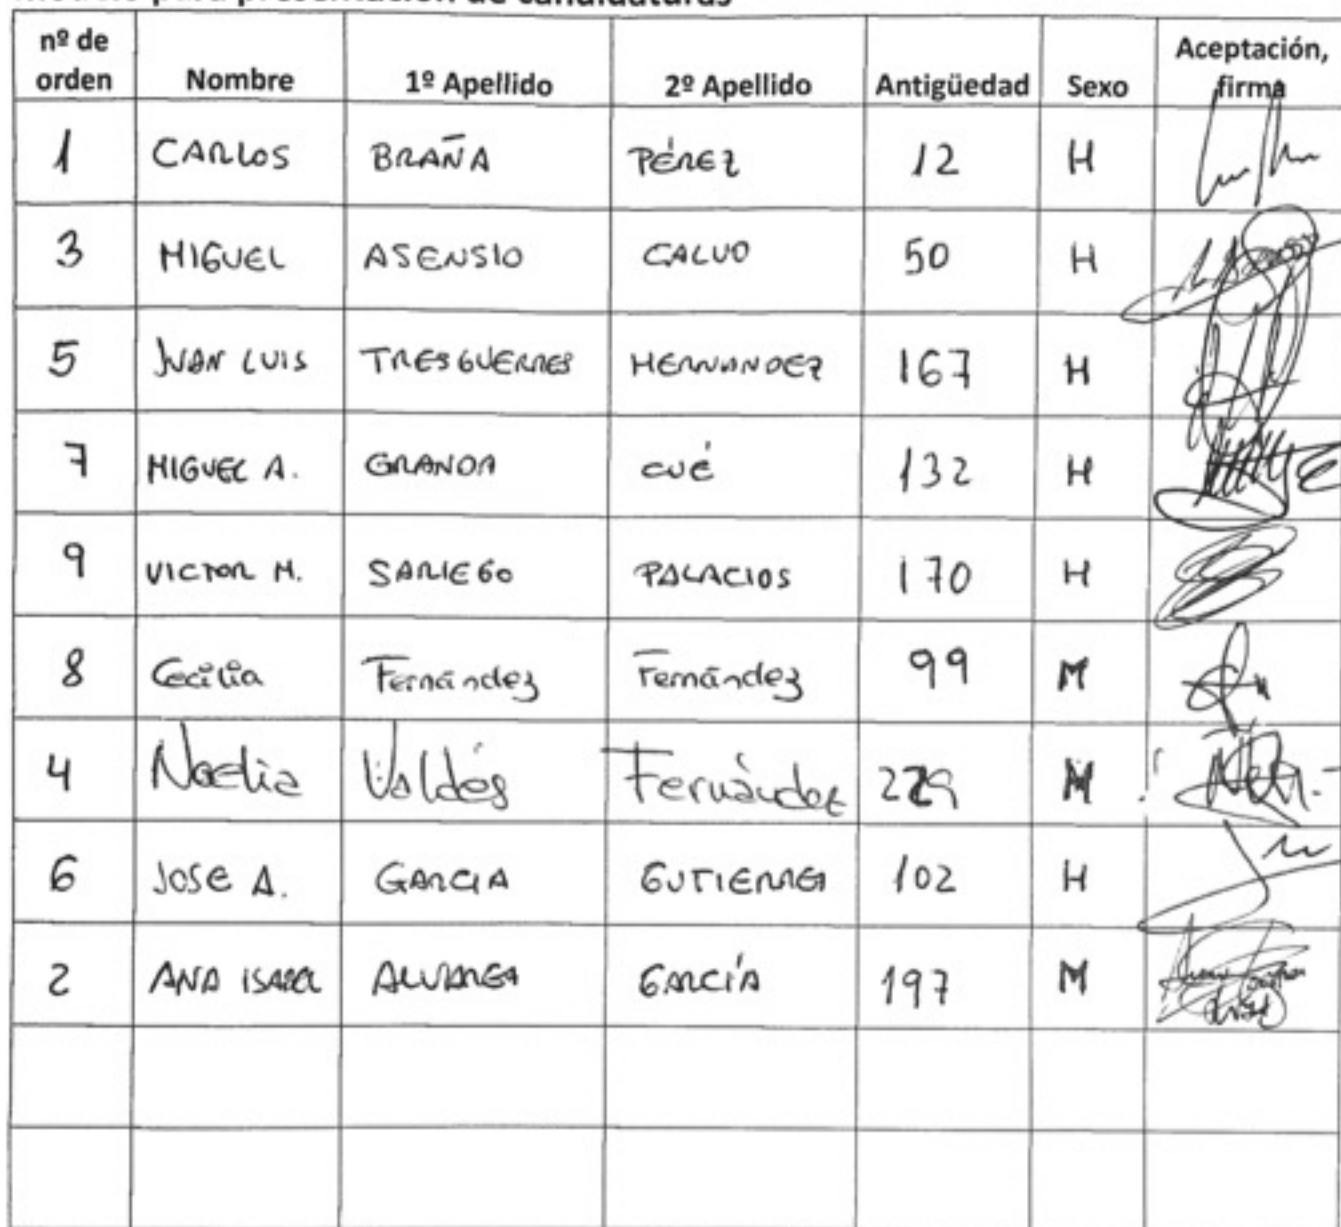 nº de orden Nombre 1º Apellido 2º Apellido Antigüedad Sexo Aceptación, firma
1 CARLOS BRAÑA PÉREZ 12 H
3 MIGUEL ASENSIO CALVO 50 H
5 JUAN LUIS TRESGUERRES HERNANDEZ 167 H
7 MIGUEL A. GRANDA CUÉ 132 H
9 VICTOR M. SARIEGO PALACIOS 170 H
8 Cecilia Fernández Fernández 99 M
4 Noelia Valdés Fernández M
6 JOSE A. GARCIA GUTIERREZ 102 H
2 ANA ISABEL ALVAREZ GARCÍA 197 M